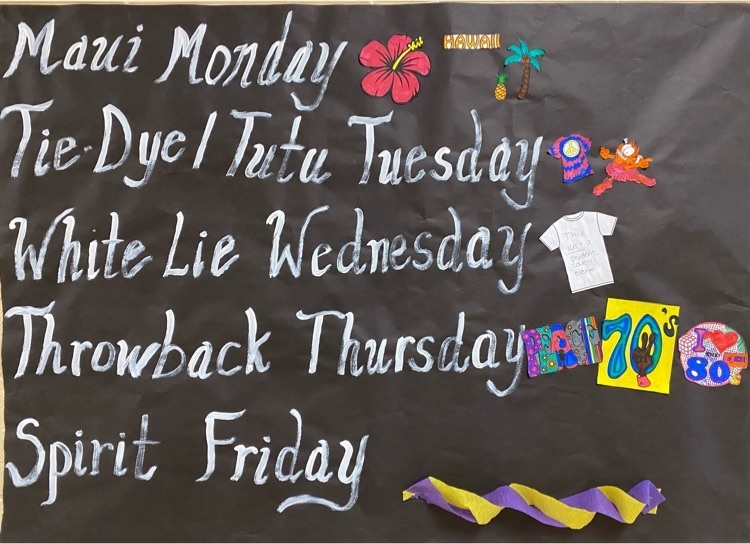 Maui Monday
HAWAII
Tie-Dye/Tutu Tuesday
White Lie Wednesday
This
isn't a
student
council
event
Throwback Thursday
70's
I
THE
80
Spirit Friday